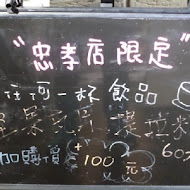 "忠孝店限定"
任何一杯飲品
提拉米
60
加購價 +100元